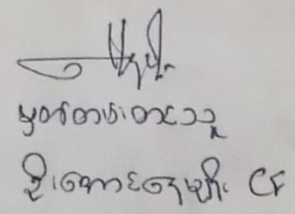 မှတ်တမ်းတင်သူ
ဦးအောင်နေမျိုး CF